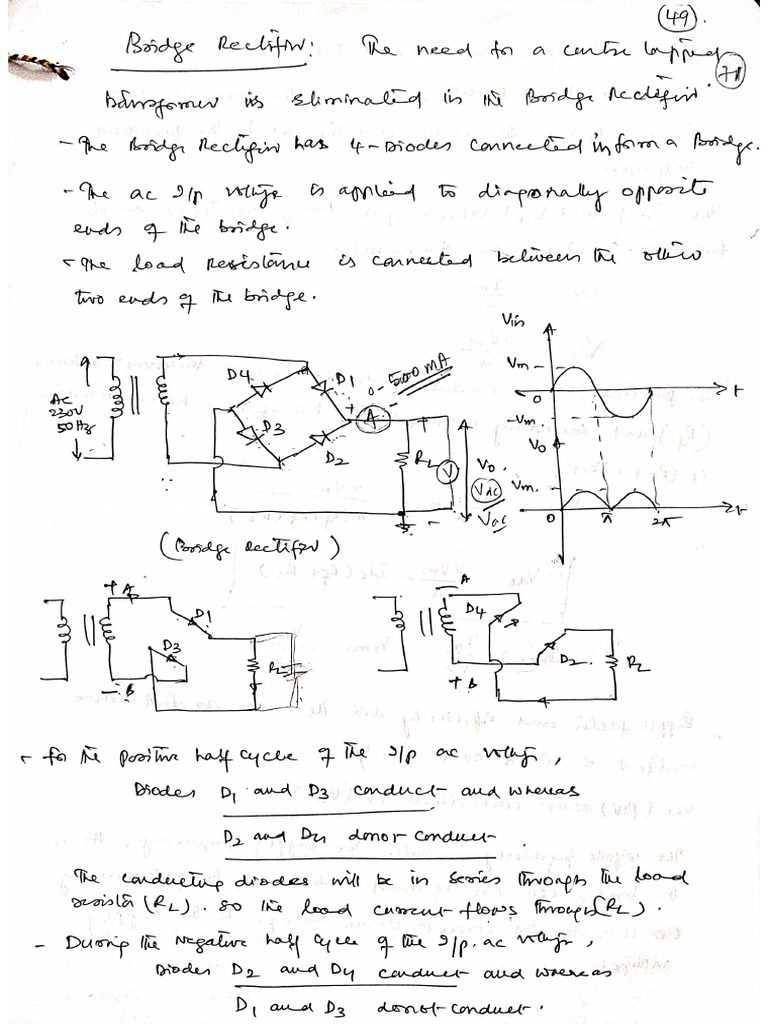 (49).
Bridge Rectifier: The need for a centre tapped
71
transformer is eliminated in the Bridge Rectifier.
- The Bridge Rectifier has 4-Diodes connected in form a Bridge.
- The ac I/p voltage is applied to diagonally opposite
ends of the bridge.
- The load resistance is connected between the other
two ends of the bridge.
Vin
Vm
0
-Vm
t
Vo
Vm
0
π
2π
t
AC
230V
50Hz
D4
D1
D3
D2
0-500 mA
+ A
+
RL
V
-
Vo.
VAC
(Bridge Rectifier)
+ A
D1
D3
RL
- B
- A
D4
D2
RL
+ B
- for the positive half cycle of the I/p ac voltage,
Diodes D1 and D3 conduct and whereas
D2 and D4 donot conduct.
The conducting diodes will be in series through the load
resistor (RL). so the load current flows through (RL).
- During the Negative half cycle of the I/p. ac voltage,
Diodes D2 and D4 conduct and whereas
D1 and D3 donot conduct.